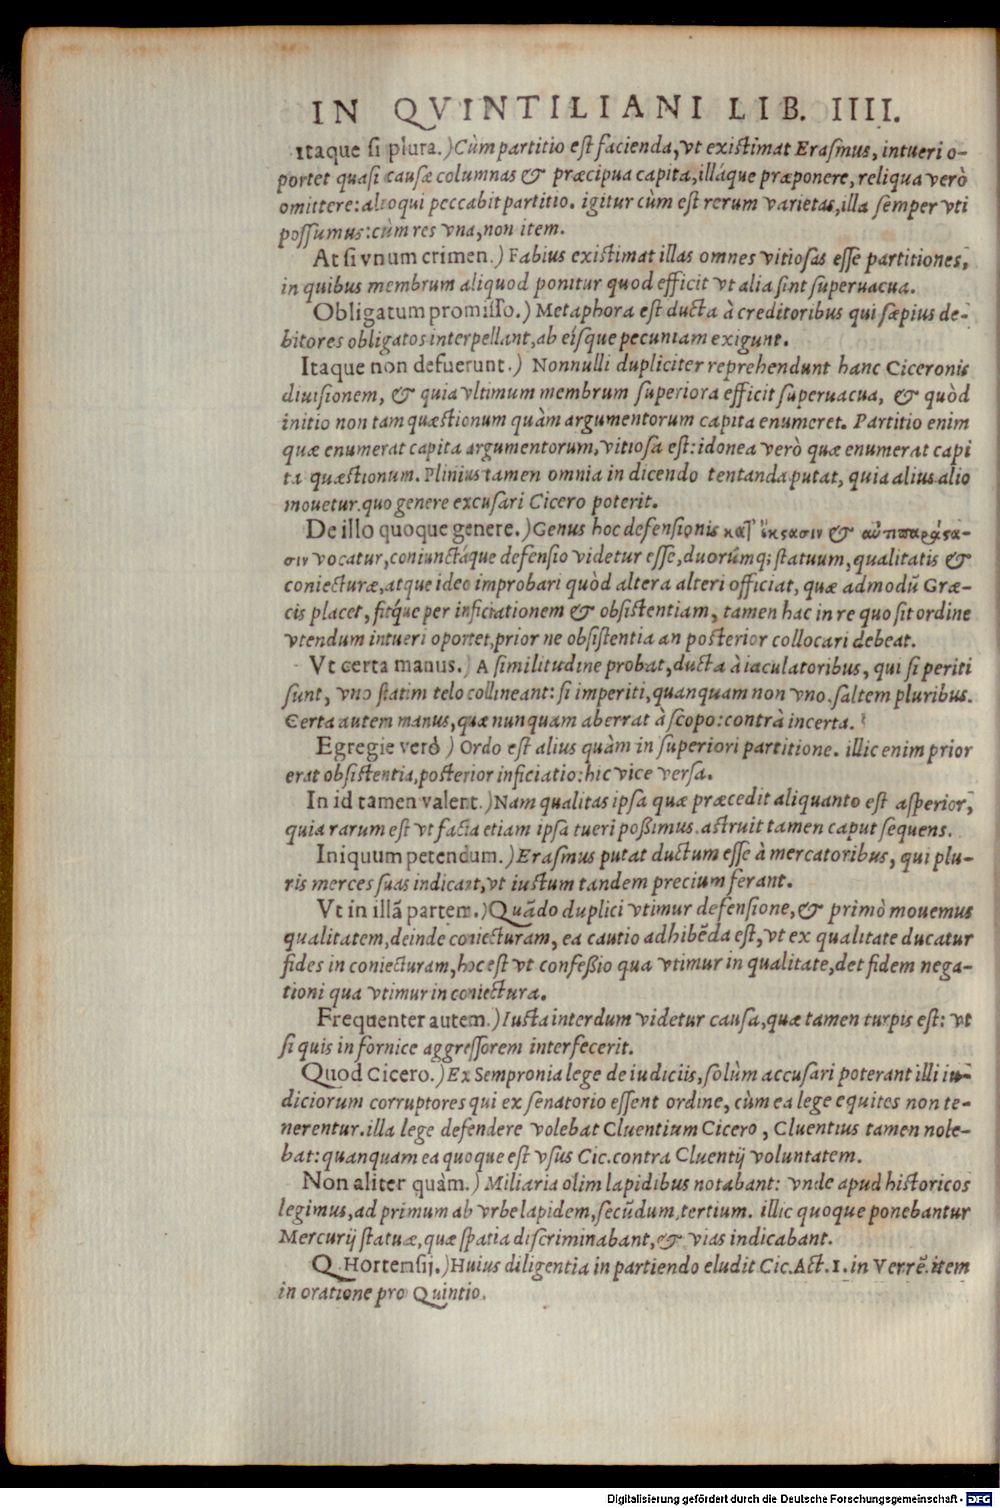 IN QVINTILIANI LIB. IIII.
Itaque si plura.) Cùm partitio est facienda, vt existimat Erasmus, intueri o-
portet quasi causæ columnas & præcipua capita, illáque præponere, reliqua verò
omittere: alioqui peccabit partitio. igitur cùm est rerum varietas, illa semper vti
possumus: cùm res vna, non item.
At si vnum crimen.) Fabius existimat illas omnes vitiosas esse partitiones,
in quibus membrum aliquod ponitur quod efficit vt alia sint superuacua.
Obligatum promisso.) Metaphora est ducta à creditoribus qui sæpius de-
bitores obligatos interpellant, ab eísque pecuniam exigunt.
Itaque non defuerunt.) Nonnulli dupliciter reprehendunt hanc Ciceronis
diuisionem, & quia vltimum membrum superiora efficit superuacua, & quòd
initio non tam quæstionum quàm argumentorum capita enumeret. Partitio enim
quæ enumerat capita argumentorum, vitiosa est: idonea verò quæ enumerat capi
ta quæstionum. Plinius tamen omnia in dicendo tentanda putat, quia alius alio
mouetur. quo genere excusari Cicero poterit.
De illo quoque genere.) Genus hoc defensionis &
σιν vocatur, coniunctáque defensio videtur esse, duorúmq; statuum, qualitatis &
coniecturæ, atque ideo improbari quòd altera alteri officiat, quæ admodū Græ-
cis placet, fitq́ue per inficiationem & obsistentiam, tamen hac in re quo sit ordine
vtendum intueri oportet, prior ne obsistentia an posterior collocari debeat.
Vt certa manus.) A similitudine probat, ducta à iaculatoribus, qui si periti
sunt, vno statim telo collineant: si imperiti, quanquam non vno, saltem pluribus.
Certa autem manus, quæ nunquam aberrat à scopo: contrà incerta.
Egregie verò ) Ordo est alius quàm in superiori partitione. illic enim prior
erat obsistentia, posterior inficiatio: hic vice versa.
In id tamen valent.) Nam qualitas ipsa quæ præcedit aliquanto est asperior,
quia rarum est vt facta etiam ipsa tueri poßimus. astruit tamen caput sequens.
Iniquum petendum.) Erasmus putat ductum esse à mercatoribus, qui plu-
ris merces suas indicant, vt iustum tandem precium ferant.
Vt in illā partem.) Quādo duplici vtimur defensione, & primò mouemus
qualitatem, deinde coniecturam, ea cautio adhibēda est, vt ex qualitate ducatur
fides in coniecturam, hoc est vt confeßio qua vtimur in qualitate, det fidem nega-
tioni qua vtimur in coniectura.
Frequenter autem.) Iusta interdum videtur causa, quæ tamen turpis est: vt
si quis in fornice aggressorem interfecerit.
Quod Cicero.) Ex Sempronia lege de iudiciis, solùm accusari poterant illi iu-
diciorum corruptores qui ex senatorio essent ordine, cùm ea lege equites non te-
nerentur. illa lege defendere volebat Cluentium Cicero, Cluentius tamen nole-
bat: quanquam ea quoque est vsus Cic. contra Cluentij voluntatem.
Non aliter quàm.) Miliaria olim lapidibus notabant: vnde apud historicos
legimus, ad primum ab vrbe lapidem, secūdum, tertium. illic quoque ponebantur
Mercurij statuæ, quæ spatia discriminabant, & vias indicabant.
Q. Hortensij.) Huius diligentia in partiendo eludit Cic. Act. 1. in Verrē. item
in oratione pro Quintio.
Digitalisierung gefördert durch die Deutsche Forschungsgemeinschaft - DFG